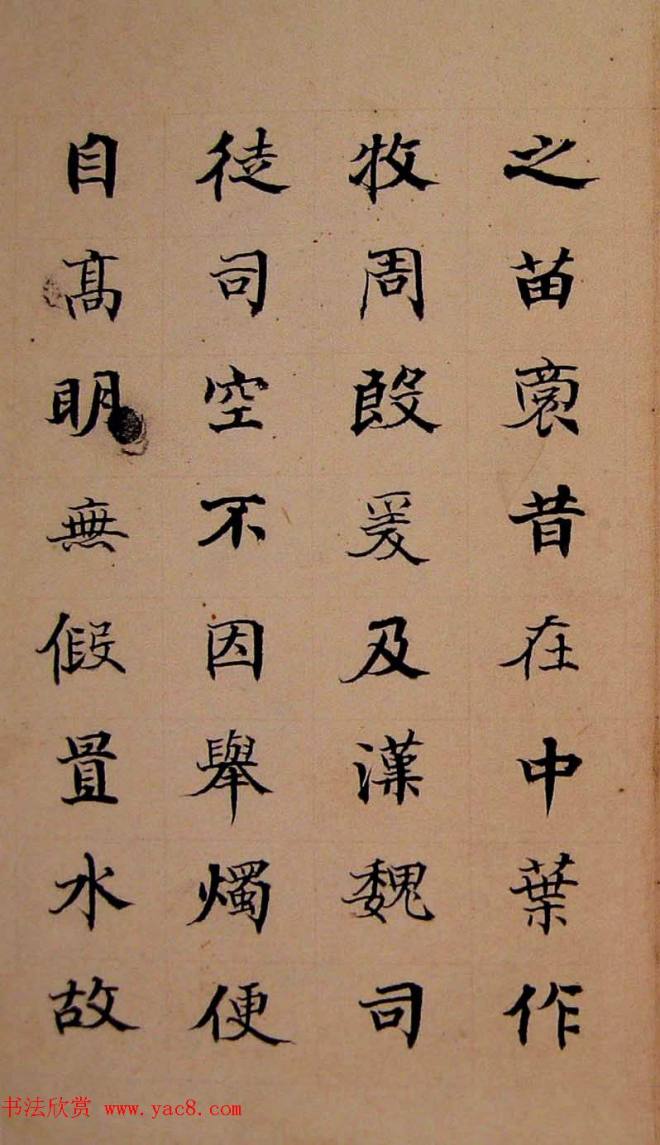 之苗裔昔在中葉作
牧周殷爰及漢魏司
徒司空不因舉燭便
自高明無假置水故
书法欣赏 www.yac8.com